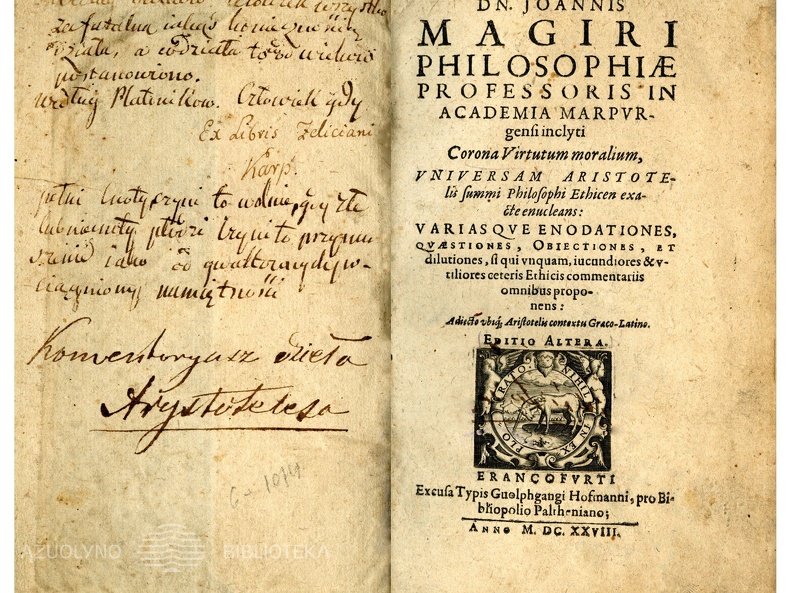 za fatalną jakąś koniecznością
działa, a co działa to od wieków
postanowiono.
według Platoników. Człowiek gdy
Ex Libris Feliciani
Karp.
pełni cnoty czyni to wolnie, gdy złe
lub niecnoty płodzi czyni to przymu
szenie iako od gwałtownych
namiętności
Komentaryusz dzieła
Arystotelesa
AZUOLYNO BIBLIOTEKA
DN. JOANNIS
MAGIRI
PHILOSOPHIÆ
PROFESSORIS IN
ACADEMIA MARPVR-
gensi inclyti
Corona Virtutum moralium,
VNIVERSAM ARISTOTE-
lis summi Philosophi Ethicen exa-
cte enucleans:
VARIASQVE ENODATIONES,
QVÆSTIONES, OBIECTIONES, ET
dilutiones, si qui vnquam, iucundiores & v-
tiliores ceteris Ethicis commentariis
omnibus propo-
nens:
Adiecto vbiq; Aristotelis contextu Græco-Latino.
EDITIO ALTERA.
PLORATO. NIHIL IN EX
FRANCOFVRTI
Excusa Typis Guolphgangi Hofmanni, pro Bi-
bliopolio Paltheniano;
ANNO M. DC. XXVIII.